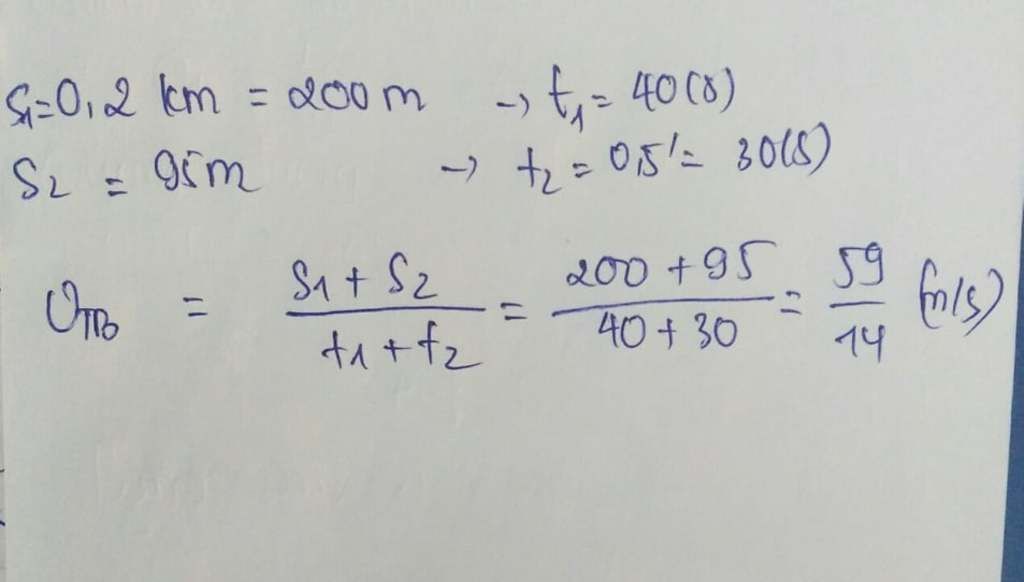 S₁ = 0,2 km = 200 m → t₁ = 40 (s)
S₂ = 95 m → t₂ = 0,5' = 30 (s)
v_TB = (S₁ + S₂)/(t₁ + t₂) = (200 + 95)/(40 + 30) = 59/14 (m/s)